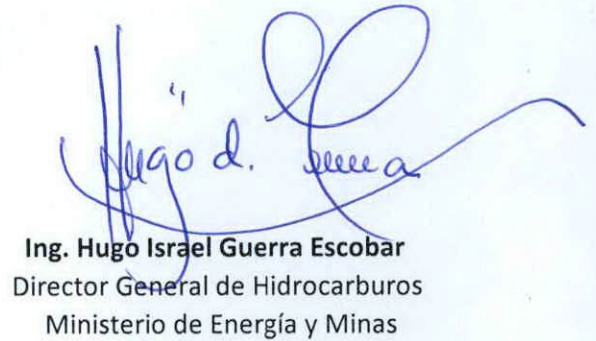 Hugo
Ing. Hugo Israel Guerra Escobar
Director General de Hidrocarburos
Ministerio de Energía y Minas